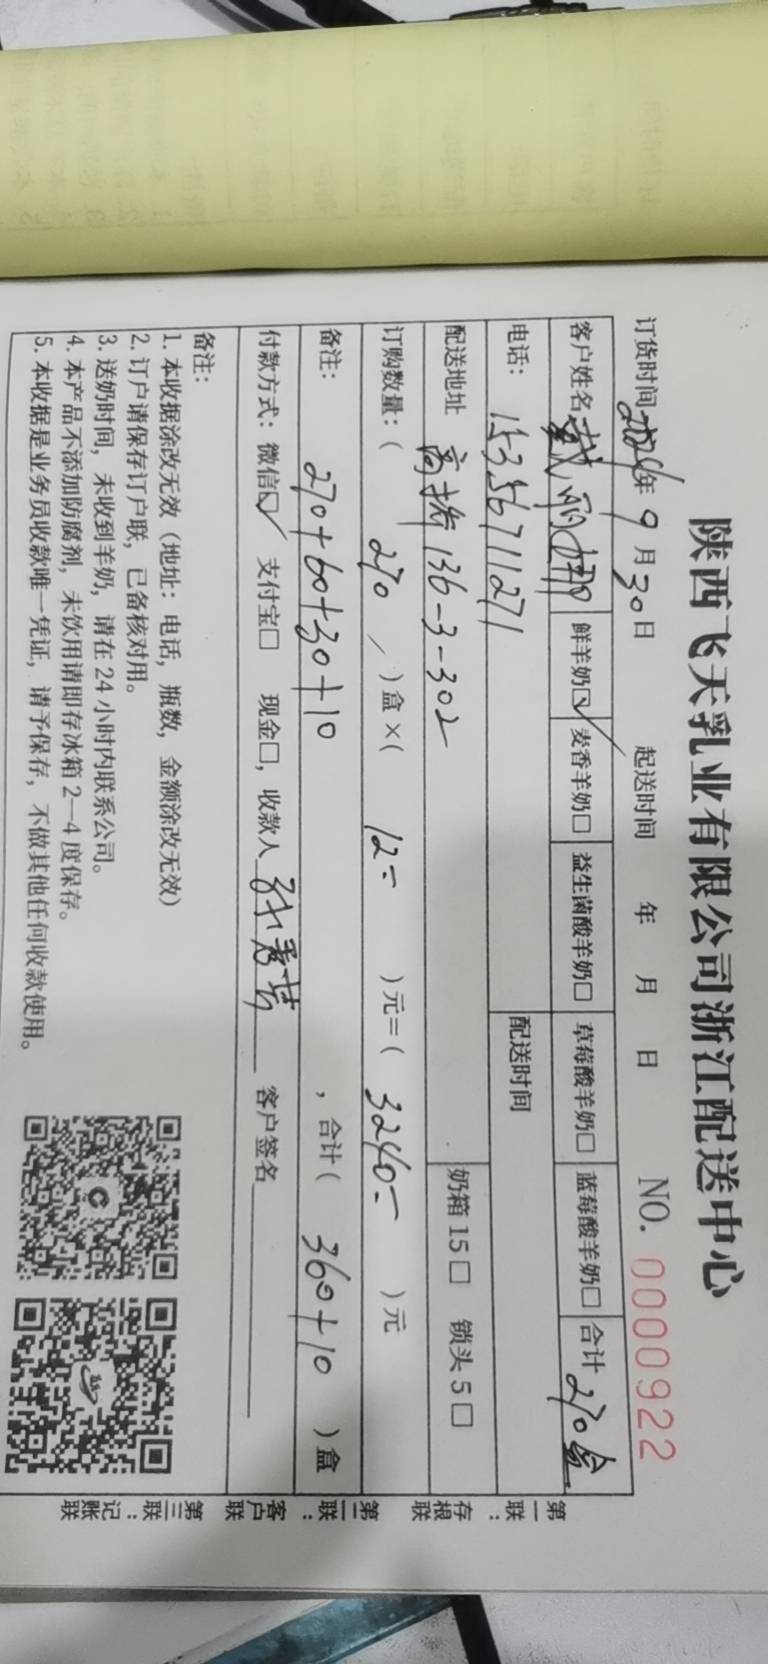 陕西飞天乳业有限公司浙江配送中心
订货时间 2024年 9月 30日 起送时间 年 月 日 NO. 0000922
客户姓名 鲜羊奶☑ 麦香羊奶□ 益生菌酸羊奶□ 草莓酸羊奶□ 蓝莓酸羊奶□ 合计 270盒
电话： 15356711271 配送时间
配送地址 136-3-302 奶箱 15□ 锁头 5□
订购数量：（ 270 ）盒×（ 12= ）元=（ 3240= ）元
备注： 270+60+30+10 ，合计（ 360+10 ）盒
付款方式：微信☑ 支付宝□ 现金□，收款人 客户签名
备注：
1. 本收据涂改无效（地址：电话，瓶数，金额涂改无效）
2. 订户请保存订户联，已备核对用。
3. 送奶时间，未收到羊奶，请在 24 小时内联系公司。
4. 本产品不添加防腐剂，未饮用请即存冰箱 2—4 度保存。
5. 本收据是业务员收款唯一凭证，请予保存，不做其他任何收款使用。
第一联：存根联
第二联：客户联
第三联：记账联